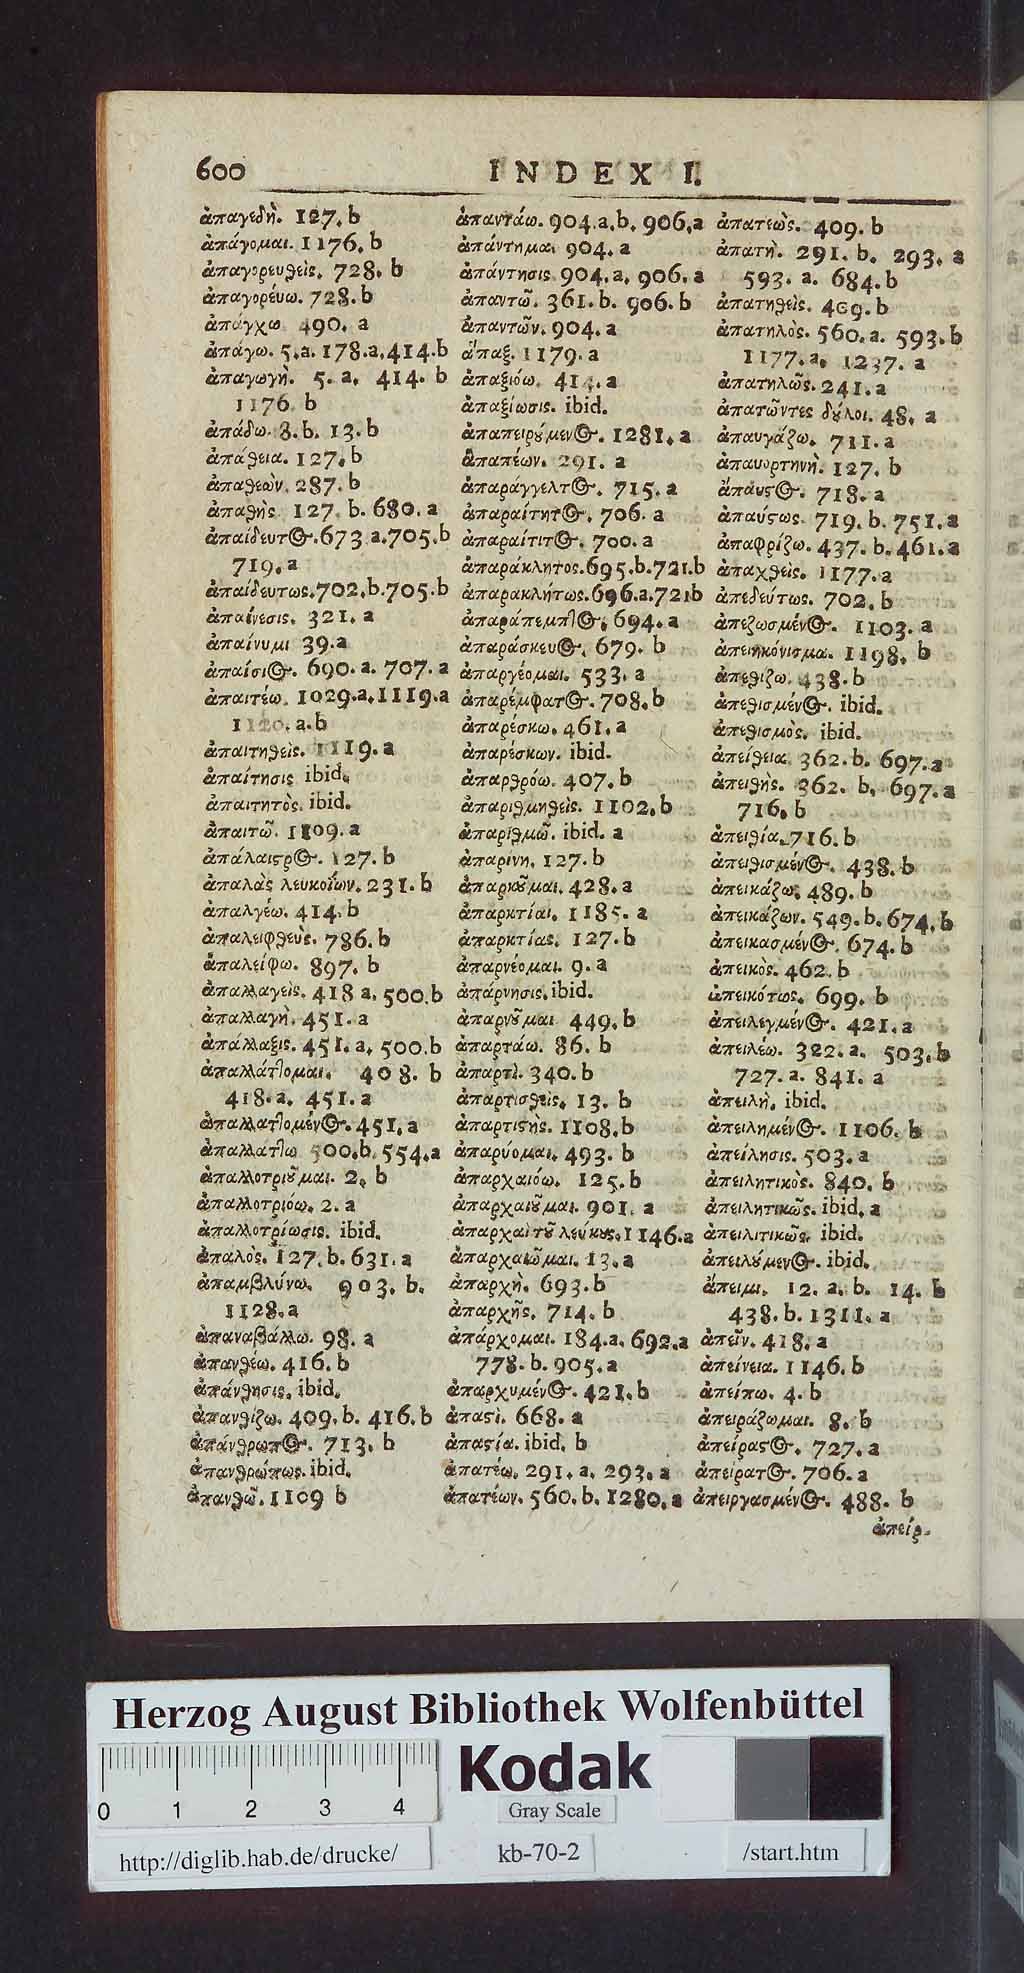 600
INDEX I.
ἀπαγεδὴ. 127. b
ἀπάγομαι. 1176. b
ἀπαγορευθεὶς. 728. b
ἀπαγορέυω. 728. b
ἀπάγχω 490. a
ἀπάγω. 5. a. 178. a. 414. b
ἀπαγωγὴ. 5. a. 414. b
1176. b
ἀπάδω. 8. b. 13. b
ἀπάθεια. 127. b
ἀπαθεὼν. 287. b
ἀπαθὴς 127. b. 680. a
ἀπαίδευτος. 673 a. 705. b
719. a
ἀπαίδευτως. 702. b. 705. b
ἀπαίνεσις. 321. a
ἀπαίνυμι 39. a
ἀπαίσιος. 690. a. 707. a
ἀπαιτέω. 1029. a. 1119. a
1120. a. b
ἀπαιτηθεὶς. 1119. a
ἀπαίτησις ibid.
ἀπαιτητὸς. ibid.
ἀπαιτῶ. 1109. a
ἀπάλαιϛρος. 127. b
ἀπαλὰς λευκοΐων. 231. b
ἀπαλγέω. 414. b
ἀπαλειφθεὺς. 786. b
ἀπαλείφω. 897. b
ἀπαλλαγεὶς. 418 a. 500. b
ἀπαλλαγὴ. 451. a
ἀπάλλαξις. 451. a. 500. b
ἀπαλλάττομαι. 408. b
418. a. 451. a
ἀπαλλαττομένος. 451. a
ἀπαλλαττω 500. b. 554. a
ἀπαλλοτριȣ͂μαι. 2. b
ἀπαλλοτριόω. 2. a
ἀπαλλοτρίωσις. ibid.
ἀπαλὸς. 127. b. 631. a
ἀπαμβλύνω. 903. b.
1128. a
ἀπαναβάλλω. 98. a
ἀπανθέω. 416. b
ἀπάνθησις. ibid.
ἀπανθίζω. 409. b. 416. b
ἀπάνθρωπος. 713. b
ἀπανθρώπως. ibid.
ἀπανθῶ. 1109 b
ἀπαντάω. 904. a. b. 906. a
ἀπάντημα. 904. a
ἀπάντησις 904. a. 906. a
ἀπαντῶ. 361. b. 906. b
ἀπαντῶν. 904. a
ἅπαξ. 1179. a
ἀπαξιόω. 414. a
ἀπαξίωσις. ibid.
ἀπαπειρȣ́μενος. 1281. a
ἀπαπέων. 291. a
ἀπαράγγελτος. 715. a
ἀπαραίτητος. 706. a
ἀπαραίτιτος. 700. a
ἀπαράκλητος. 695. b. 721. b
ἀπαρακλήτως. 696. a. 721 b
ἀπαράπεμπτος. 694. a
ἀπαράσκευος. 679. b
ἀπαργέομαι. 533. a
ἀπαρέμφατος. 708. b
ἀπαρέσκω. 461. a
ἀπαρέσκων. ibid.
ἀπαρθρόω. 407. b
ἀπαριθμηθεὶς. 1102. b
ἀπαριθμῶ. ibid. a
ἀπαρίνη. 127. b
ἀπαρκȣ͂μαι. 428. a
ἀπαρκτίαι. 1185. a
ἀπαρκτίας. 127. b
ἀπαρνέομαι. 9. a
ἀπάρνησις. ibid.
ἀπαρνȣ͂μαι 449. b
ἀπαρτάω. 86. b
ἀπαρτὶ. 340. b
ἀπαρτισθεὶς. 13. b
ἀπαρτιϛὴς. 1108. b
ἀπαρύομαι. 493. b
ἀπαρχαιόω. 125. b
ἀπαρχαιȣ͂μαι. 901. a
ἀπαρχαὶ τȣ͂ λεύκȣς. 1146. a
ἀπαρχαιῶμαι. 13. a
ἀπαρχὴ. 693. b
ἀπαρχῆς. 714. b
ἀπάρχομαι. 184. a. 692. a
778. b. 905. a
ἀπαρχυμένος. 421. b
ἀπαϛὶ. 668. a
ἀπαϛία. ibid. b
ἀπατέω. 291. a. 293. a
ἀπατέων. 560. b. 1280. a
ἀπατεὼς. 409. b
ἀπατὴ. 291. b. 293. a
593. a. 684. b
ἀπατηθεὶς. 469. b
ἀπατηλὸς. 560. a. 593. b
1177. a. 1237. a
ἀπατηλῶς. 241. a
ἀπατῶντες δȣ́λοι. 48. a
ἀπαυγάζω. 711. a
ἀπαυορτηνὴ. 127. b
ἄπαυϛος. 718. a
ἀπαύϛως. 719. b. 751. a
ἀπαφρίζω. 437. b. 461. a
ἀπαχθεὶς. 1177. a
ἀπεδεύτως. 702. b
ἀπεζωσμένος. 1103. a
ἀπεικόνισμα. 1198. b
ἀπεθίζω. 438. b
ἀπεθισμένος. ibid.
ἀπεθισμὸς. ibid.
ἀπείθεια. 362. b. 697. a
ἀπειθὴς. 362. b. 697. a
716. b
ἀπειθία. 716. b
ἀπειθισμένος. 438. b
ἀπεικάζω. 489. b
ἀπεικάζων. 549. b. 674. b
ἀπεικασμένος. 674. b
ἀπεικὸς. 462. b
ἀπεικότως. 699. b
ἀπειλεγμένος. 421. a
ἀπειλέω. 322. a. 503. b
727. a. 841. a
ἀπειλὴ. ibid.
ἀπειλημένος. 1106. b
ἀπείλησις. 503. a
ἀπειλητικὸς. 840. b
ἀπειλητικῶς. ibid. a
ἀπειλιτικῶς. ibid.
ἀπειλȣ́μενος. ibid.
ἄπειμι. 12. a. b. 14. b
438. b. 1311. a
ἀπεῖν. 418. a
ἀπείνεια. 1146. b
ἀπείπω. 4. b
ἀπειράζωμαι. 8. b
ἀπείραϛος. 727. a
ἀπείρατος. 706. a
ἀπειργασμένος. 488. b
ἀπείρ-
Herzog August Bibliothek Wolfenbüttel
Kodak
0 1 2 3 4
Gray Scale
http://diglib.hab.de/drucke/
kb-70-2
/start.htm